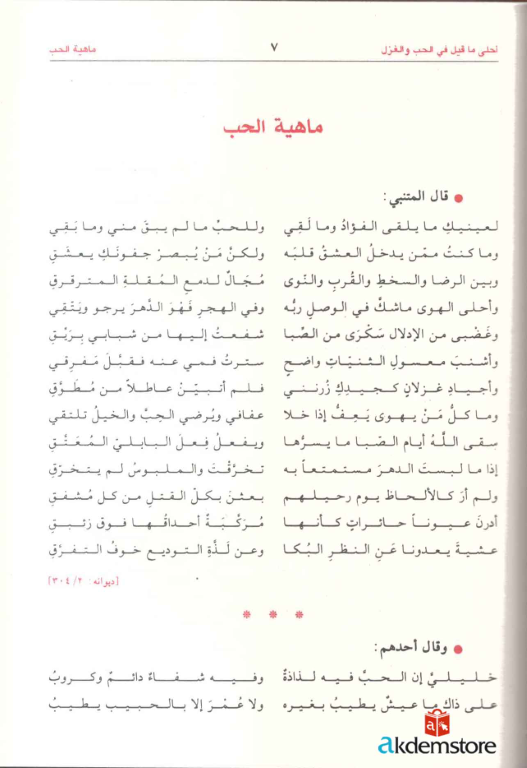 أحلى ما قيل في الحب والغزل ٧ ماهية الحب
ماهية الحب
● قال المتنبي:
لعينيكِ ما يلقى الفؤادُ وما لَقِي وللحبِّ ما لم يبقَ مني وما بَقِي
وما كنتُ ممّن يدخلُ العشقُ قلبَه ولكنَّ مَنْ يُبصرْ جفونَكِ يعشَقِ
وبين الرضا والسخطِ والقُربِ والنّوى مُجَالٌ لدمعِ المُقلةِ المترقرقِ
وأحلى الهوى ماشكَّ في الوصلِ ربُّه وفي الهجرِ فَهْوَ الدَّهرَ يرجو ويَتَّقِي
وغَضْبى من الإدلال سَكْرَى من الصِّبا شفعتُ إليها من شبابي بِرَيِّقِ
وأشنبَ معسولِ الثنيّاتِ واضحٍ سترتُ فمي عنه فقبَّلَ مَفرِقي
وأجيادِ غزلانٍ كجيدِكِ زُرنني فلم أتبيّنْ عاطلاً من مُطَوَّقِ
وما كلُّ مَنْ يهوى يَعِفُّ إذا خلا عفافي ويُرضي الحِبَّ والخيلُ تلتقي
سقى اللَّهُ أيامَ الصِّبا ما يسرُّها ويفعلُ فِعلَ البابليِّ المُعَتَّقِ
إذا ما لبستَ الدهرَ مستمتعاً به تخرَّقْتَ والملبوسُ لم يتخرّقِ
ولم أرَ كالألحاظِ يوم رحيلهم بعثنَ بكلِّ القتلِ من كل مُشفقِ
أدرنَ عيوناً حائراتٍ كأنها مُرَكَّبَةٌ أحداقُها فوق زئبقِ
عشيةَ يعدونا عَنِ النظرِ البُكا وعن لذّةِ التوديعِ خوفُ التفرّقِ
[ديوانه: ٣٠٤/٢]
* * *
● وقال أحدهم:
خليليَّ إن الحبَّ فيه لذاذةٌ وفيه شفاءٌ دائمٌ وكروبُ
على ذاك ما عيشٌ يطيبُ بغيره ولا عُمْرَ إلا بالحبيبِ يطيبُ
akdemstore